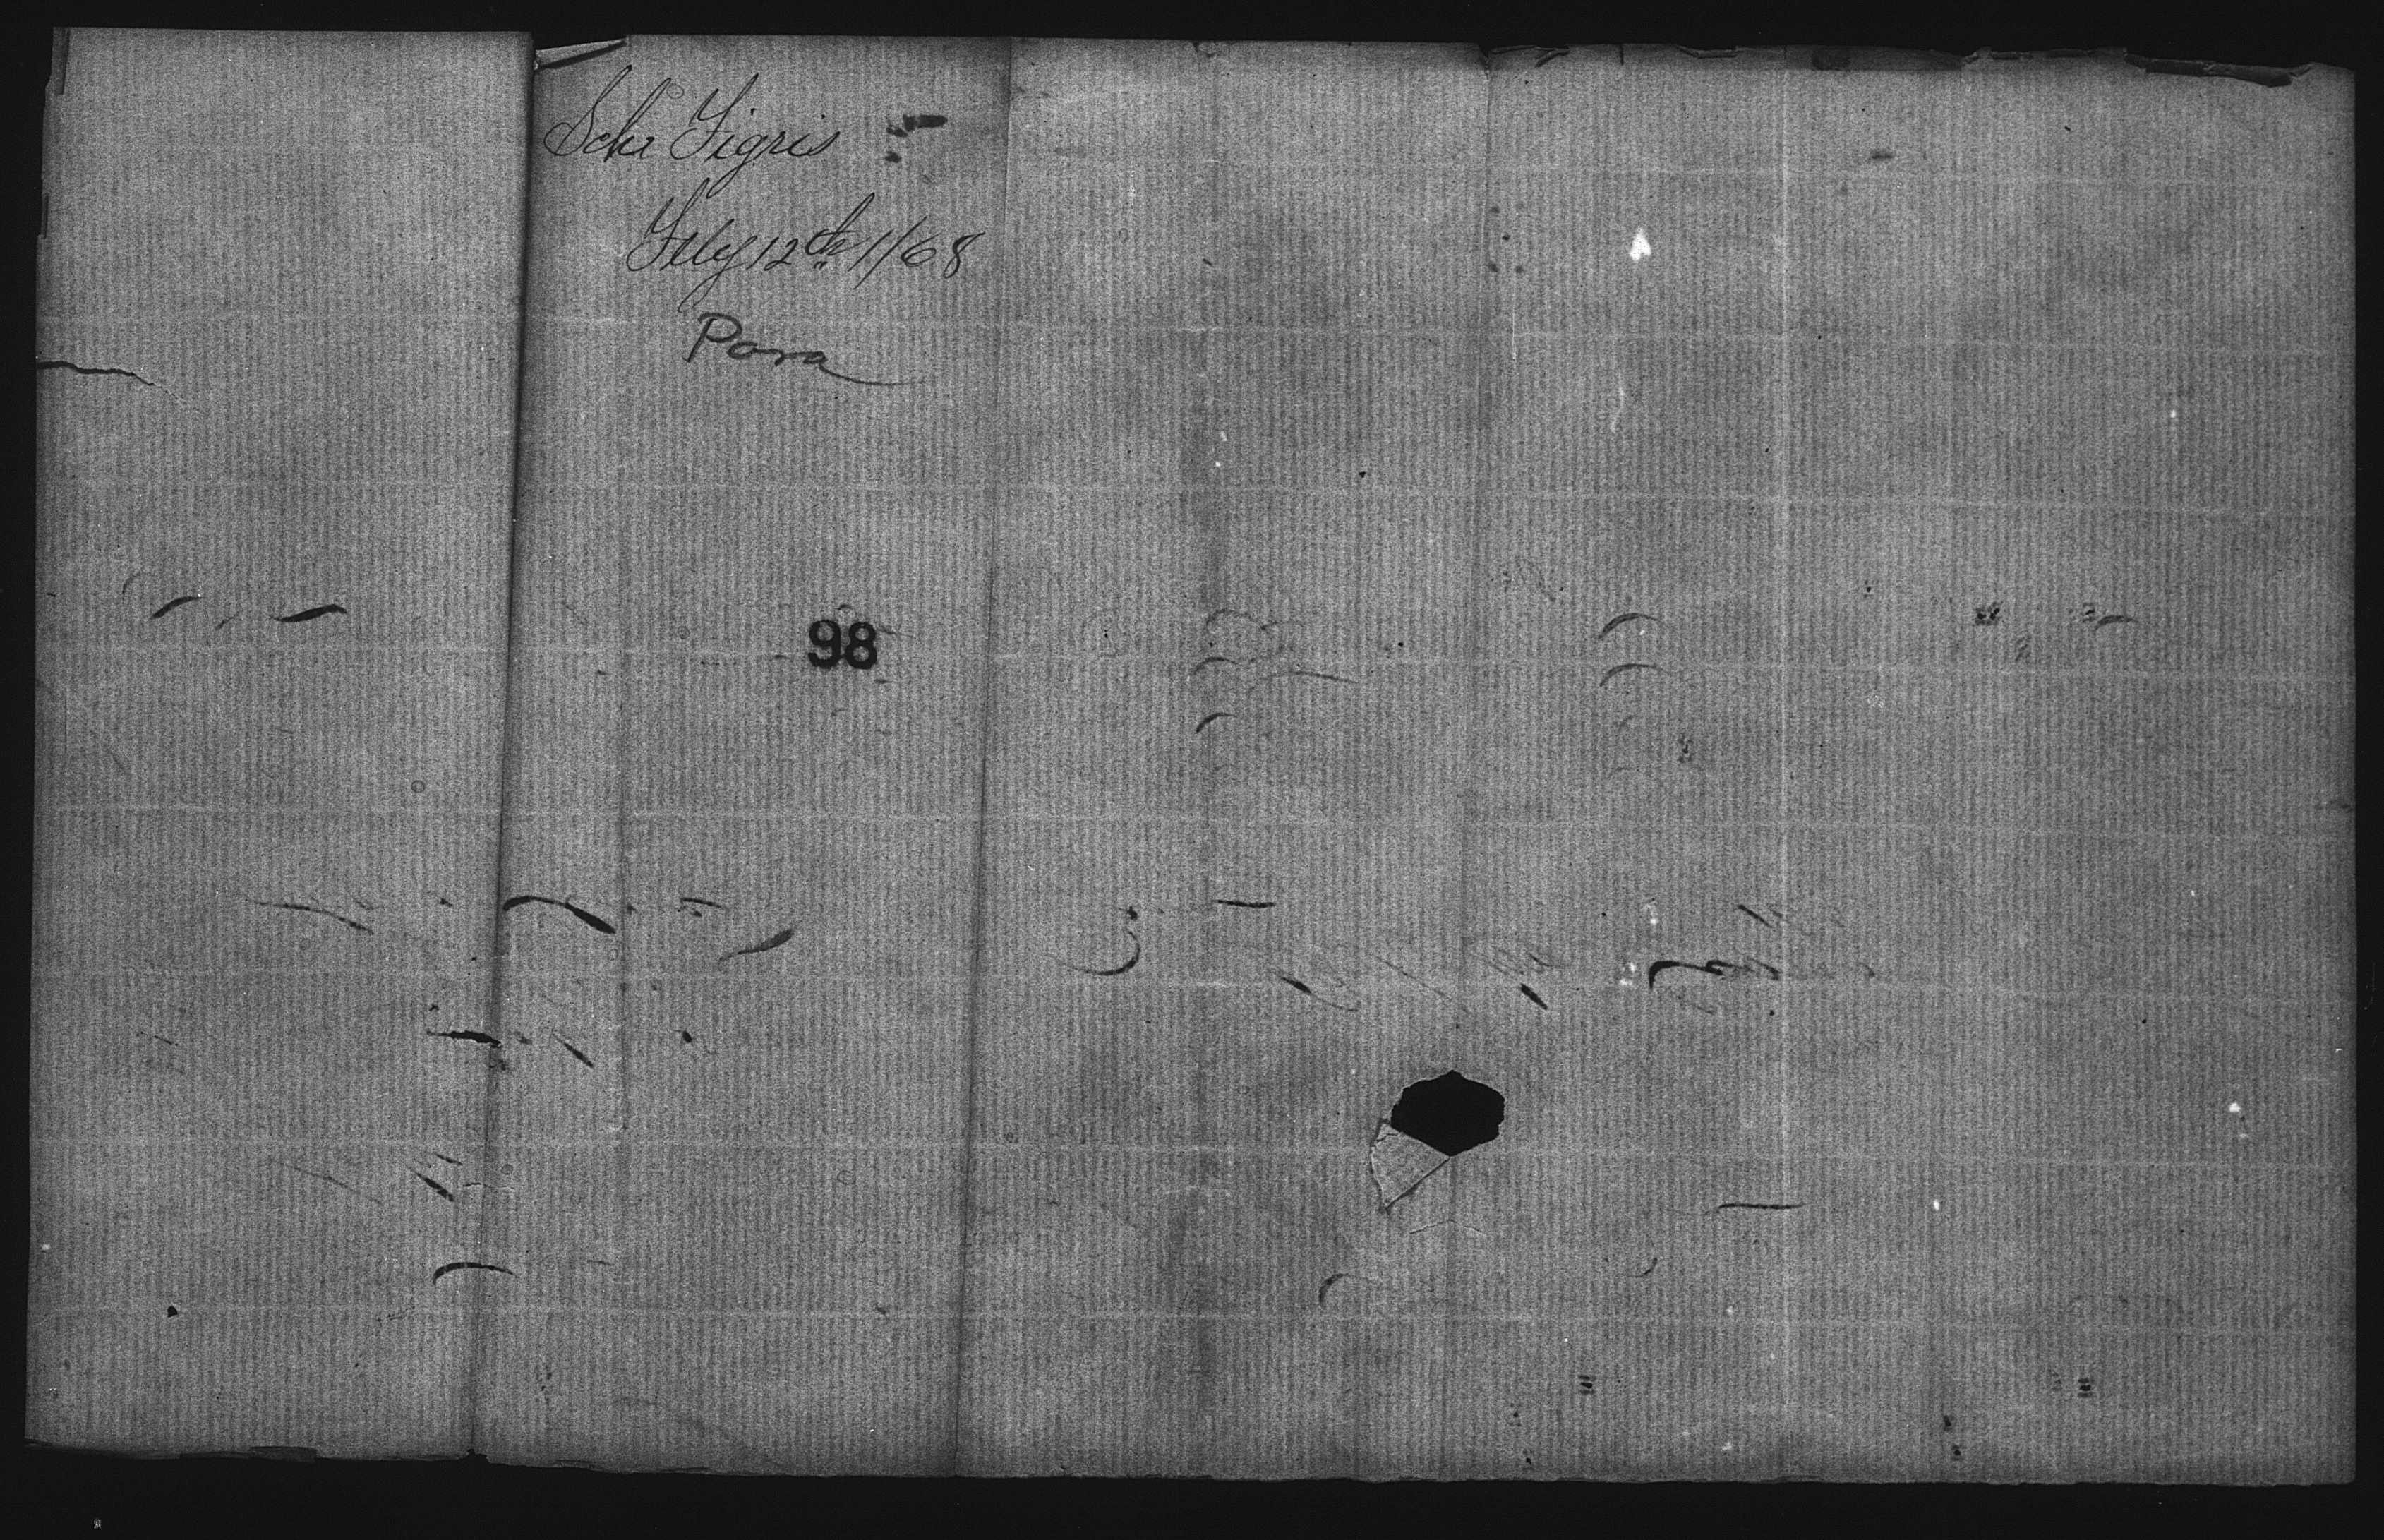 Schr Tigris
July 12th 1/68
Para
98